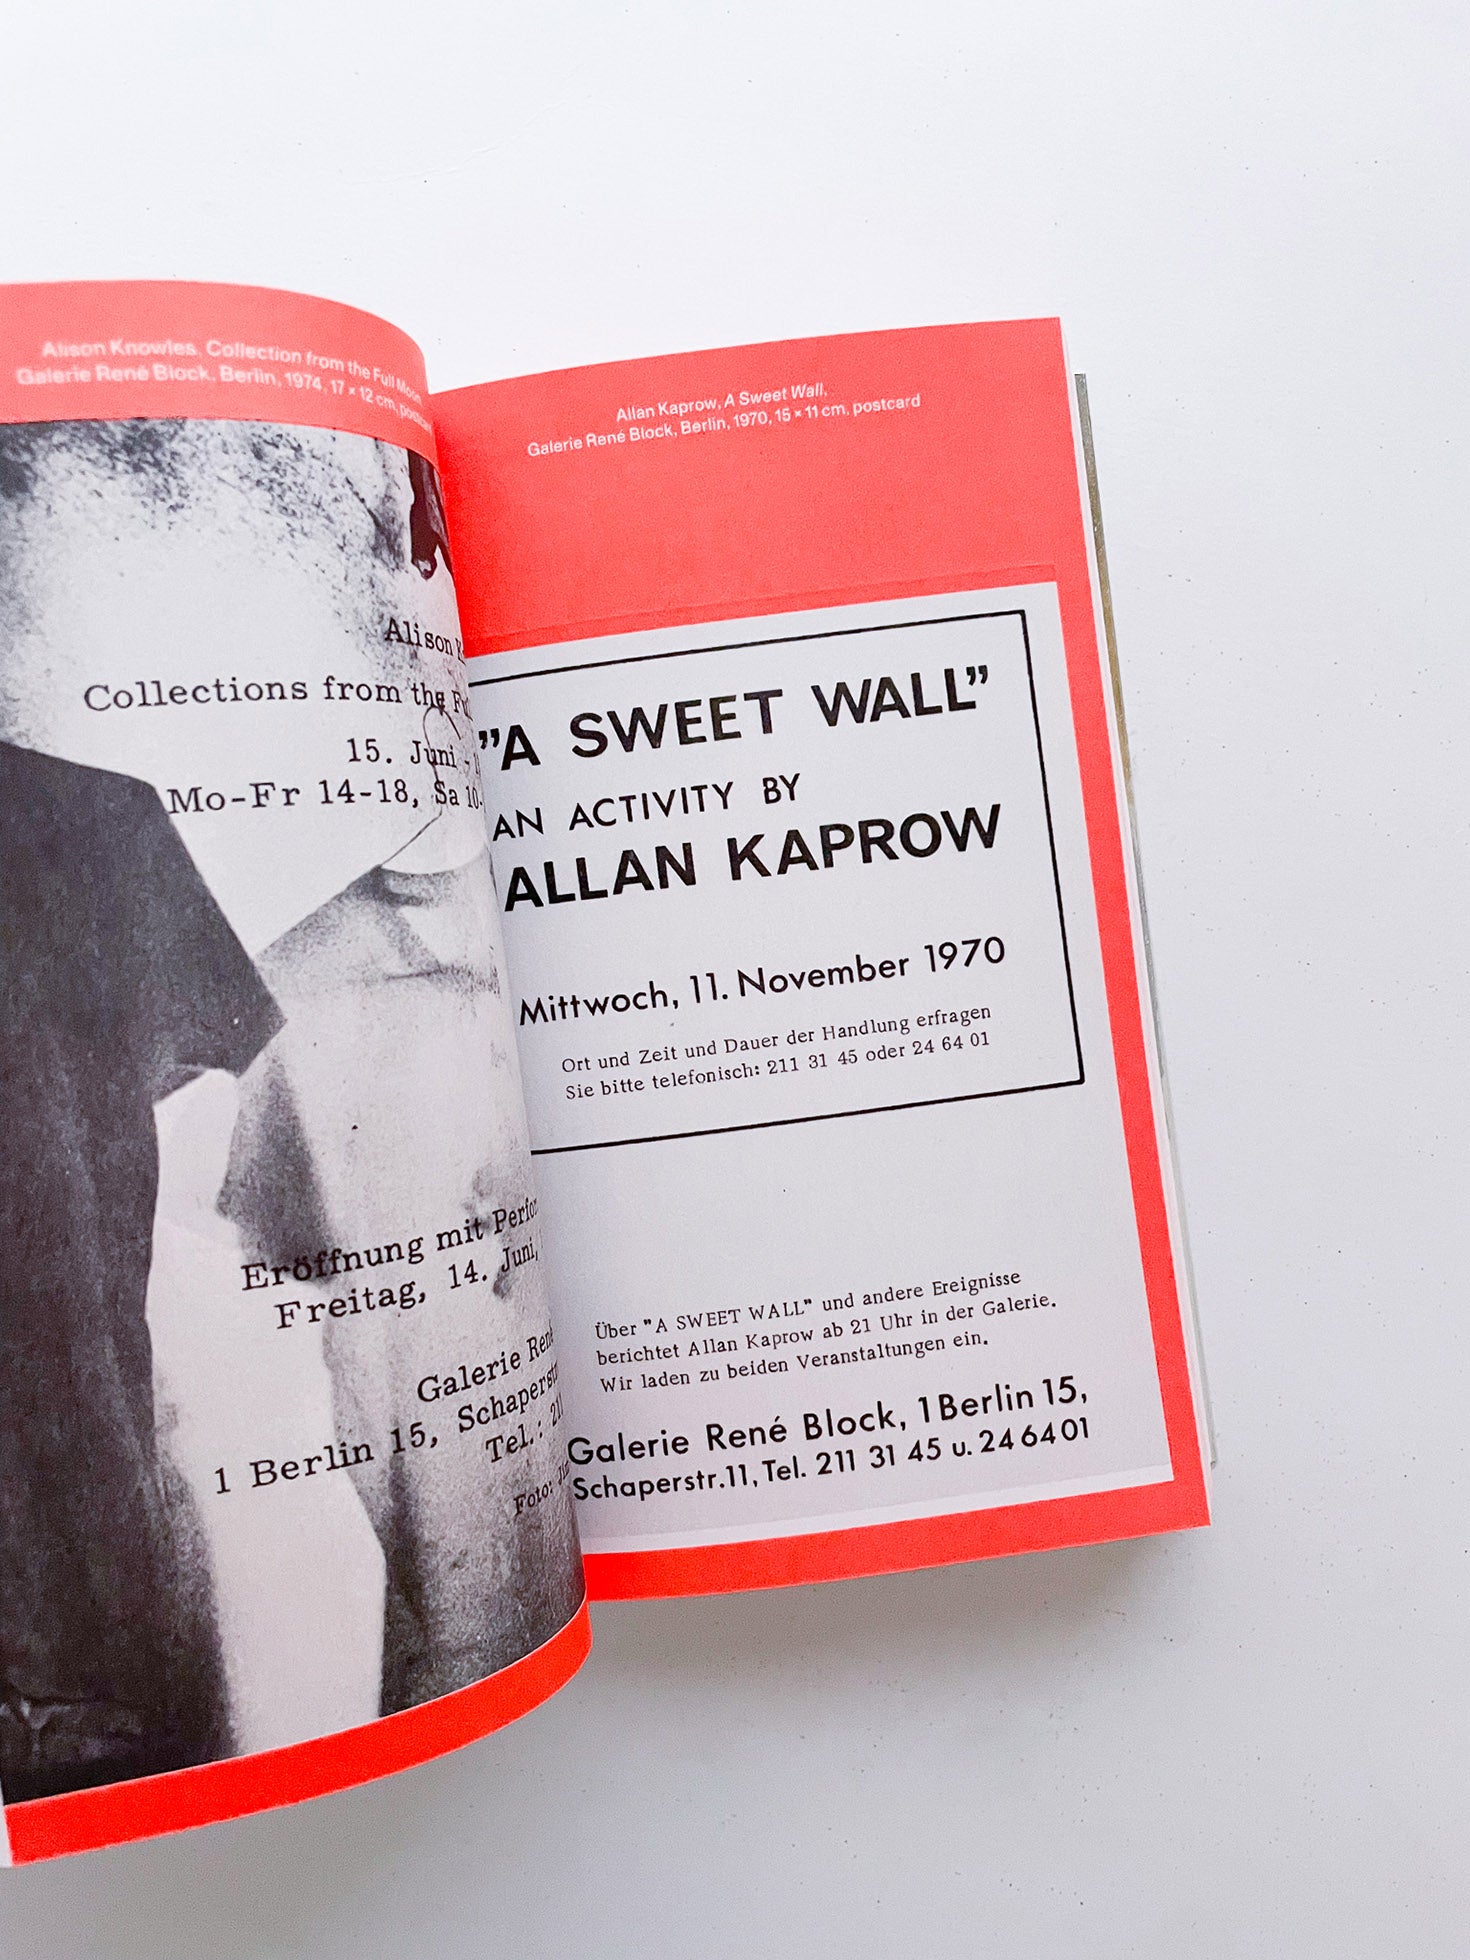 Alison Knowles, Collection from the Full Moon
Galerie René Block, Berlin, 1974, 17 × 12 cm, postcard
Alison
Collections from the
15. Juni -
Mo-Fr 14-18, Sa 10-
Eröffnung mit
Freitag, 14. Juni,
Galerie René
1 Berlin 15,
Tel.:
Foto:
Allan Kaprow, A Sweet Wall,
Galerie René Block, Berlin, 1970, 15 × 11 cm, postcard
”A SWEET WALL”
AN ACTIVITY BY
ALLAN KAPROW
Mittwoch, 11. November 1970
Ort und Zeit und Dauer der Handlung erfragen
Sie bitte telefonisch: 211 31 45 oder 24 64 01
Über "A SWEET WALL" und andere Ereignisse
berichtet Allan Kaprow ab 21 Uhr in der Galerie.
Wir laden zu beiden Veranstaltungen ein.
Galerie René Block, 1 Berlin 15,
Schaperstr.11, Tel. 211 31 45 u. 24 64 01